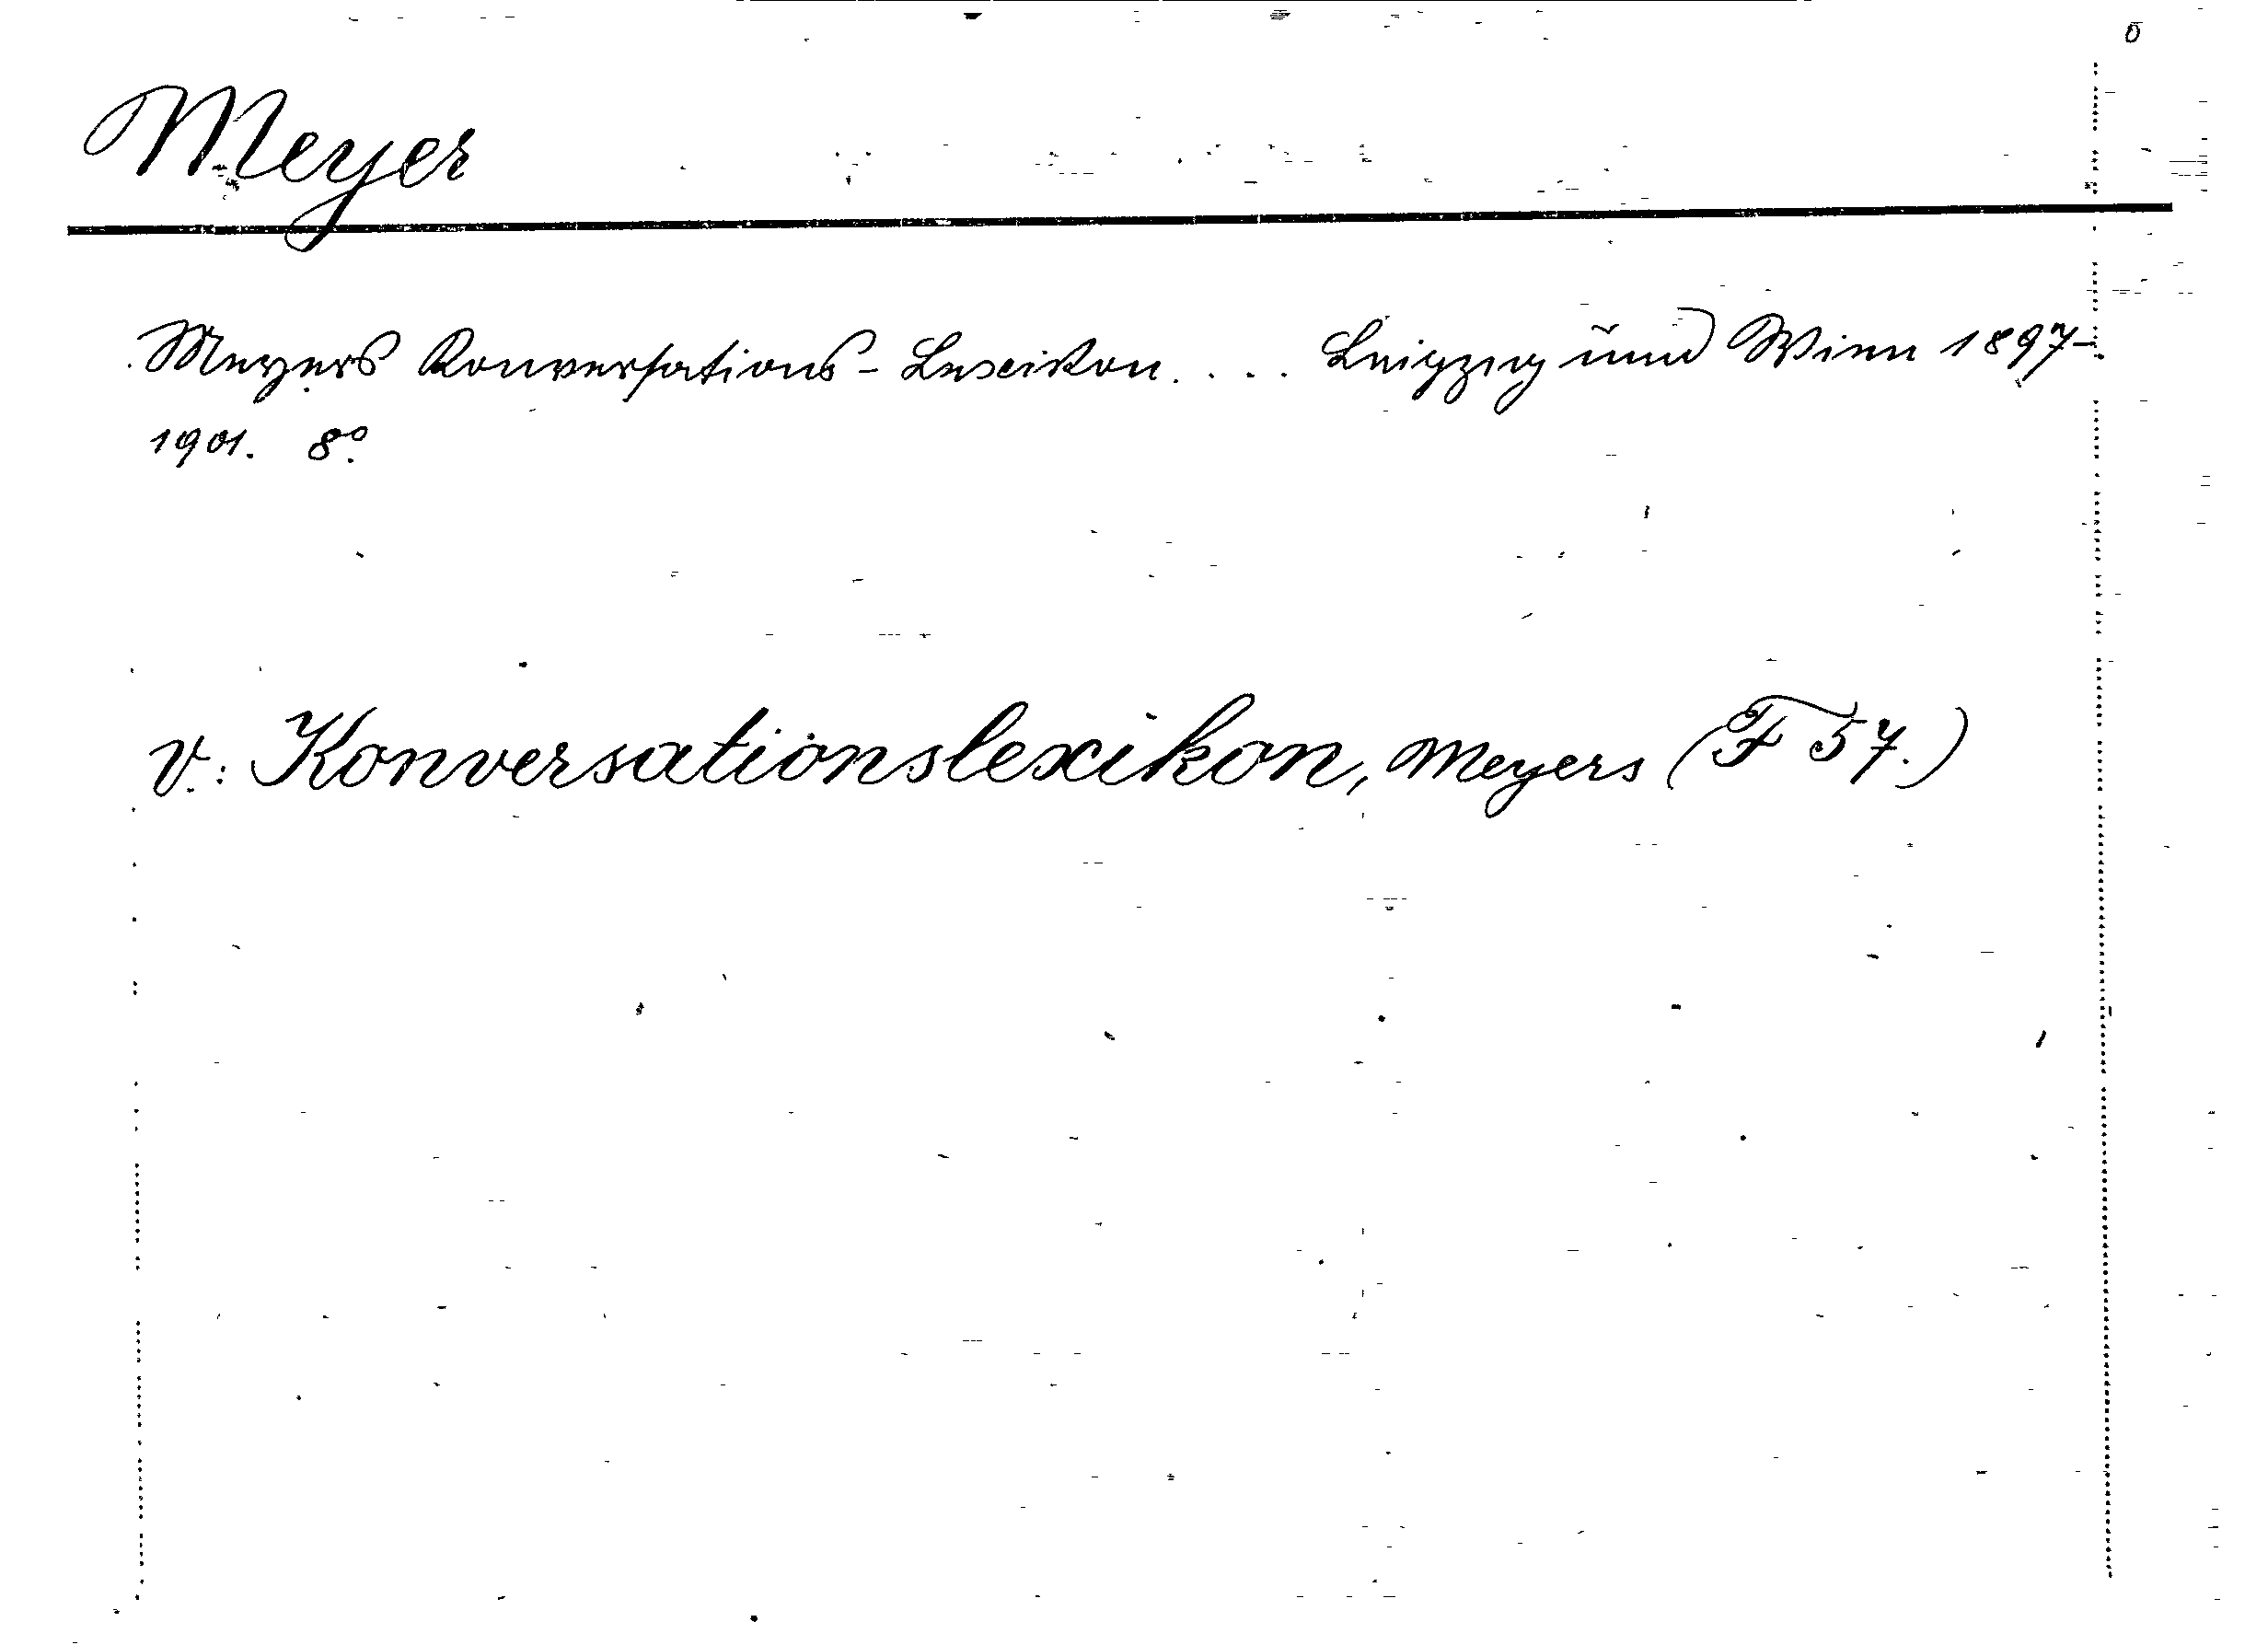 Meyer
Meyers Konversations-Lexikon. ... Leipzig und Wien 1897-
1901. 8°.
v.: Konversationslexikon, Meyers (F 57.)